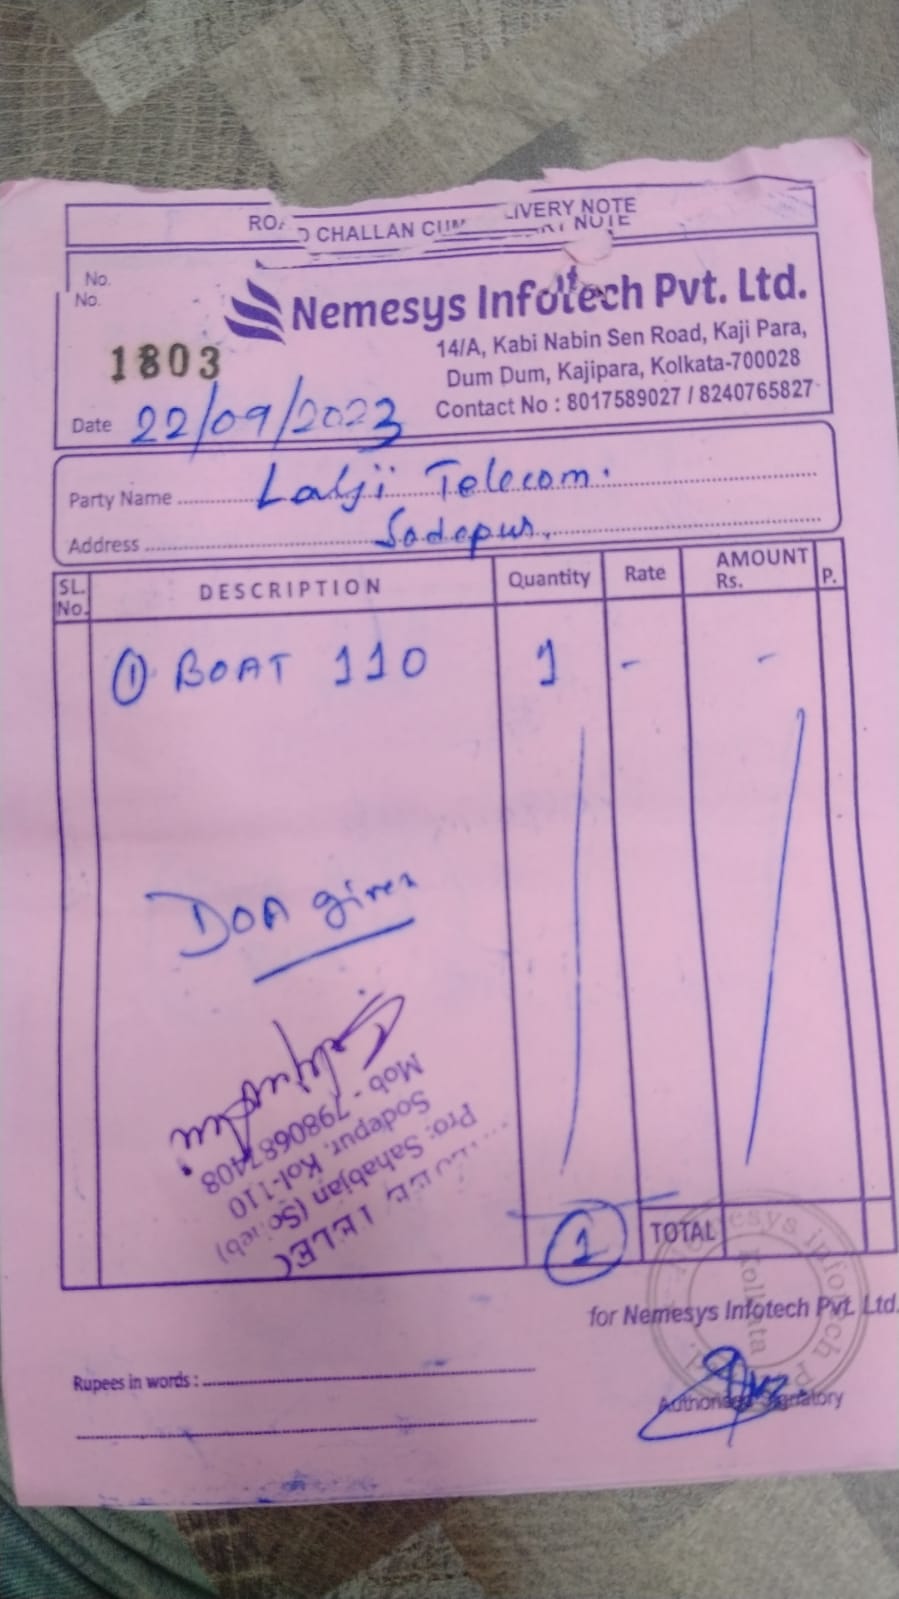 ROA
D CHALLAN CUM
LIVERY NOTE
RY NOTE
No.
No.
1803
Nemesys Infotech Pvt. Ltd.
14/A, Kabi Nabin Sen Road, Kaji Para,
Dum Dum, Kajipara, Kolkata-700028
Contact No : 8017589027 / 8240765827
Date 22/09/2023
Party Name Lalji Telecom.
Address Sodepur.
SL. No. DESCRIPTION Quantity Rate AMOUNT Rs. P.
① BOAT 110 1 - -
DOA given
TELEC
Pro: Sahabjan (Saheb)
Sodepur, Kol-110
Mob - 7980687408
1 TOTAL
Nemesys Infotech P
Kolkata
for Nemesys Infotech Pvt. Ltd.
Rupees in words :
Authorised Signatory